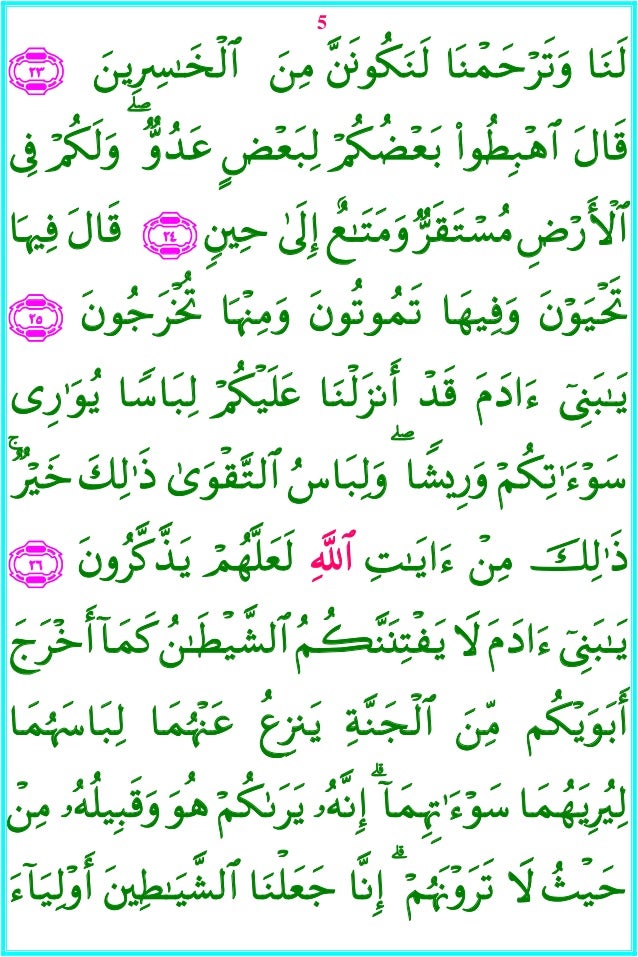 5
لَنَا وَتَرْحَمْنَا لَنَكُونَنَّ مِنَ ٱلْخَـٰسِرِينَ ٢٣
قَالَ ٱهْبِطُوا۟ بَعْضُكُمْ لِبَعْضٍ عَدُوٌّ ۖ وَلَكُمْ فِى
ٱلْأَرْضِ مُسْتَقَرٌّ وَمَتَـٰعٌ إِلَىٰ حِينٍ ٢٤ قَالَ فِيهَا
تَحْيَوْنَ وَفِيهَا تَمُوتُونَ وَمِنْهَا تُخْرَجُونَ ٢٥
يَـٰبَنِىٓ ءَادَمَ قَدْ أَنزَلْنَا عَلَيْكُمْ لِبَاسًا يُوَٰرِى
سَوْءَٰتِكُمْ وَرِيشًا ۖ وَلِبَاسُ ٱلتَّقْوَىٰ ذَٰلِكَ خَيْرٌ ۚ
ذَٰلِكَ مِنْ ءَايَـٰتِ ٱللَّهِ لَعَلَّهُمْ يَذَّكَّرُونَ ٢٦
يَـٰبَنِىٓ ءَادَمَ لَا يَفْتِنَنَّكُمُ ٱلشَّيْطَـٰنُ كَمَآ أَخْرَجَ
أَبَوَيْكُم مِّنَ ٱلْجَنَّةِ يَنزِعُ عَنْهُمَا لِبَاسَهُمَا
لِيُرِيَهُمَا سَوْءَٰتِهِمَآ ۗ إِنَّهُۥ يَرَىٰكُمْ هُوَ وَقَبِيلُهُۥ مِنْ
حَيْثُ لَا تَرَوْنَهُمْ ۗ إِنَّا جَعَلْنَا ٱلشَّيَـٰطِينَ أَوْلِيَآءَ